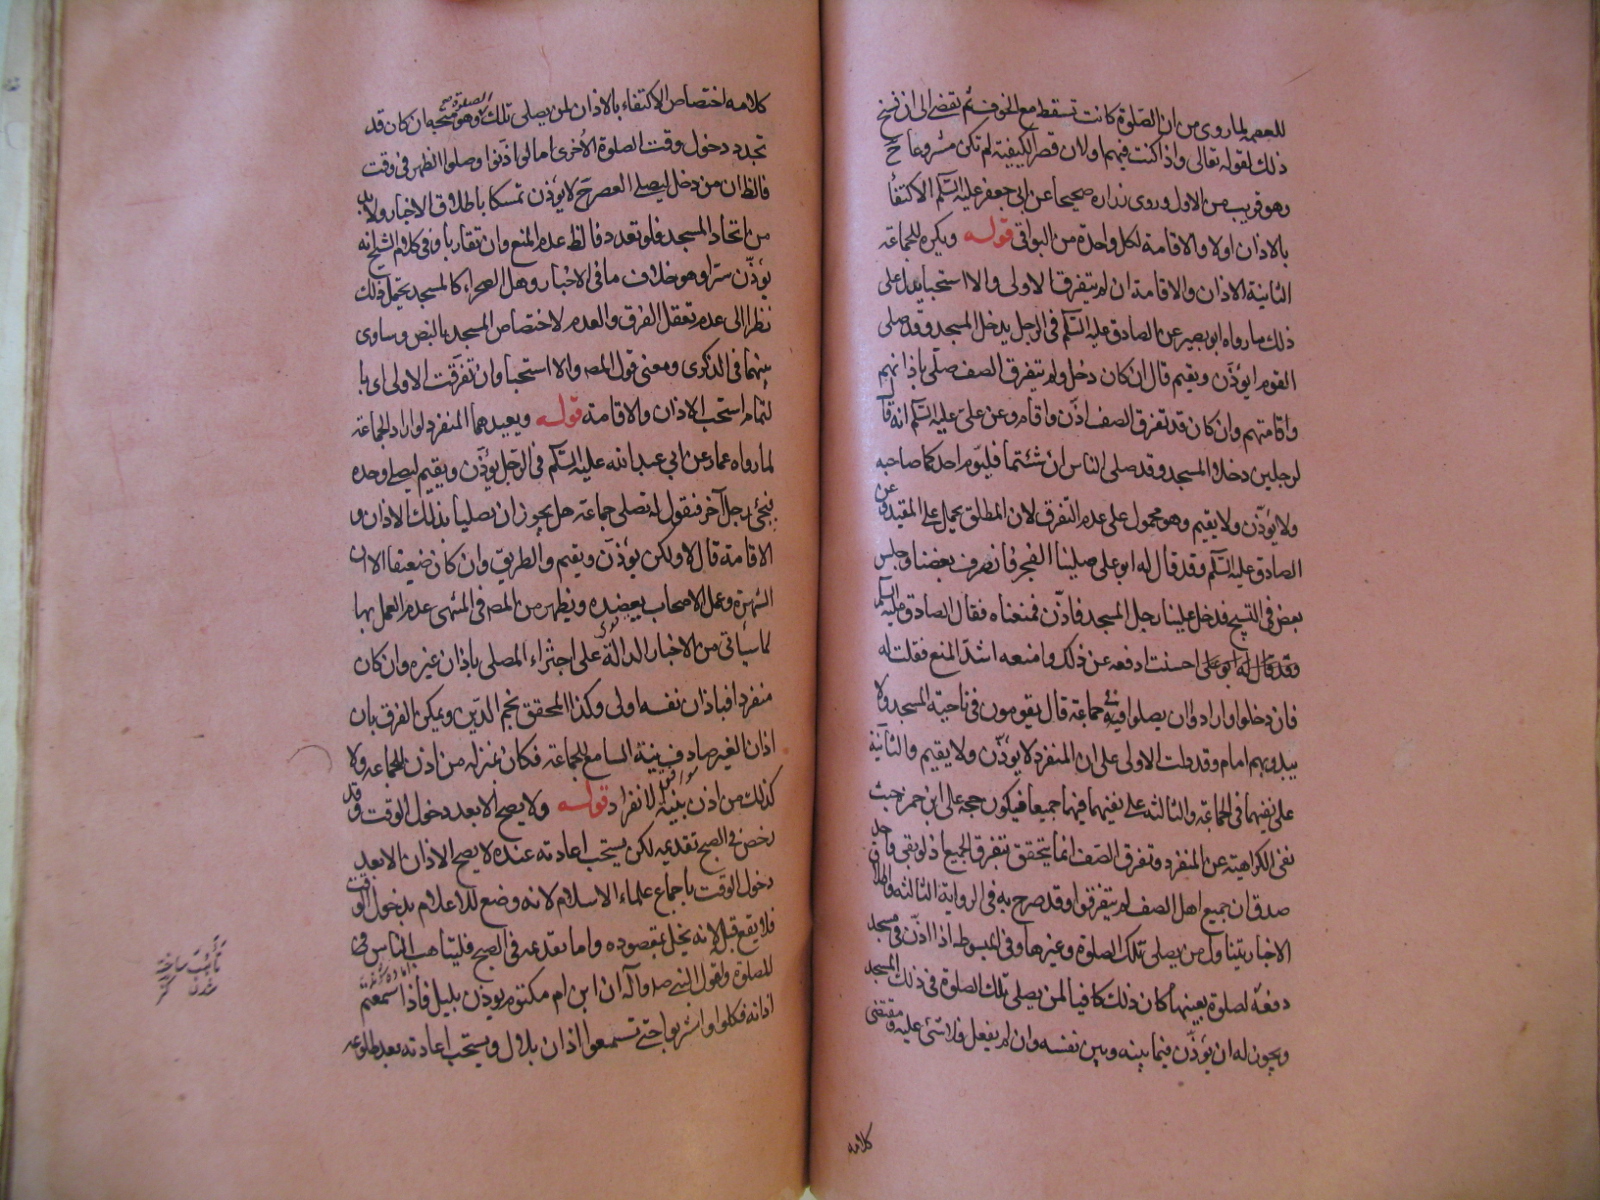 للعصمه لما روى من ان الصلوة كانت تسقط مع الخوف ثم تقضى الى ان نسخ
ذلك لقوله تعالى واذا كنت فيهم ولان قصر الكيفية لم تكن مشروعا ح
وهو قريب من الاول وروى زراره صحيحا عن ابى جعفر عليه السلم الاكتفا
بالاذان اولا والاقامة لكل واحدة من البواقى قوله ويكره للجماعة
الثانية الاذان والاقامة ان لم يتفرق الاولى والا استحبا يدل على
ذلك ما رواه ابو بصير عن الصادق عليه السلم فى الرجل يدخل المسجد وقد صلى
القوم ايؤذن ويقيم قال ان كان دخل ولم يتفرق الصف صلى باذانهم
واقامتهم وان كان قد تفرق الصف اذن واقام وعن على عليه السلم انه قال
لرجلين دخلا المسجد وقد صلى الناس ان شئتما فليؤم احدكما صاحبه
ولا يؤذن ولا يقيم وهو محمول على عدم التفرق لان المطلق يحمل على المقيد وعن
الصادق عليه السلم وقد قال له ابو على صلينا الفجر فانصرف بعضنا وجلس
بعض فى التسبيح فدخل علينا رجل المسجد فاذن فمنعناه فقال الصادق عليه السلم
وقد قال له ابو على احسنت ادفعه عن ذلك وامنعه اشد المنع فقلت له
فان دخلوا وارادوا ان يصلوا فيه جماعة قال يقومون فى ناحية المسجد ولا
يبدو بهم امام وقد دلت الاولى على ان المنفرد لا يؤذن ولا يقيم والثانية
على نفيهما فى الجماعة والثالثه على نفيهما فيهما جميعا فيكون حجه على ابن حمزه حيث
نفى الكراهية عن المنفرد وتفرق الصف انما يتحقق بتفرق الجميع اذ لو بقى واحد
صدق ان جميع اهل الصف لم يتفرقوا وقد صرح به فى الرواية الثالثه واطلاق
الاخبار يتناول من يصلى تلك الصلوة وغيرها وفى المبسوط اذا اذن فى مسجد
دفعة لصلوة بعينها كان ذلك كافيا لمن يصلى تلك الصلوة فى ذلك المسجد
ويجوز له ان يؤذن فيما بينه وبين نفسه وان لم يفعل فلا شئ عليه ومقتضى
كلامه
كلامه اختصاص الاكتفاء بالاذان لمن يصلى تلك الصلوة وهو متجه ان كان قد
تجدد دخول وقت الصلوة الاخرى اما لو اذنوا وصلوا الظهر فى وقت
فالظ ان من دخل ليصلى العصر ح لا يؤذن تمسكا باطلاق الاخبار ولا بد
من اتحاد المسجد فلو تعدد فالظ عدم المنع وان تقاربا وفى كلام الشيخ انه
يؤذن سرا وهو خلاف ما فى الاخبار وهل الصحراء كالمسجد يحتمل ذلك
نظرا الى عدم تعقل الفرق والعدم لاختصاص المسجد بالنص وساوى
بينهما فى الذكرى ومعنى قول المص والا استحبا وان تفرقت الاولى اى با
لتمام استحب الاذان والاقامة قوله ويعيدهما المنفرد لو اراد الجماعة
لما رواه عمار عن ابي عبد الله عليه السلم فى الرجل يؤذن ويقيم ليصلى وحده
فيجئ رجل آخر فيقول له نصلى جماعة هل يجوز ان يصليا بذلك الاذان و
الاقامة قال لا ولكن يؤذن ويقيم والطريق وان كان ضعيفا الا ان
الشهرة وعمل الاصحاب يعضده ويظهر من المص فى المنتهى عدم العمل بها
لما سيأتى من الاخبار الدالة على اجتزاء المصلى باذان غيره وان كان
منفردا فباذان نفسه اولى وكذا المحقق نجم الدين ويمكن الفرق بان
اذان الغير صادف نية السامع للجماعة فكان بمنزلة من اذن للجماعه ولا
كذلك من اذن بنية الانفراد قوله ولا يصح الا بعد دخول الوقت وقد
رخص فى الصبح تقديمه لكن يستحب اعادته عنده لا يصح الاذان الا بعد
دخول الوقت باجماع علماء الاسلام لانه وضع للاعلام بدخول الوقت
فلا يقع قبله لانه يخل بمقصوده واما تقدمه فى الصبح فليتاهب الناس فى
للصلوة ولقول النبى ص وآله ان ابن ام مكتوم يؤذن بليل فاذا سمعتم
اذانه فكلوا واشربوا حتى تسمعوا اذان بلال ويستحب اعادته بعد طلوعه